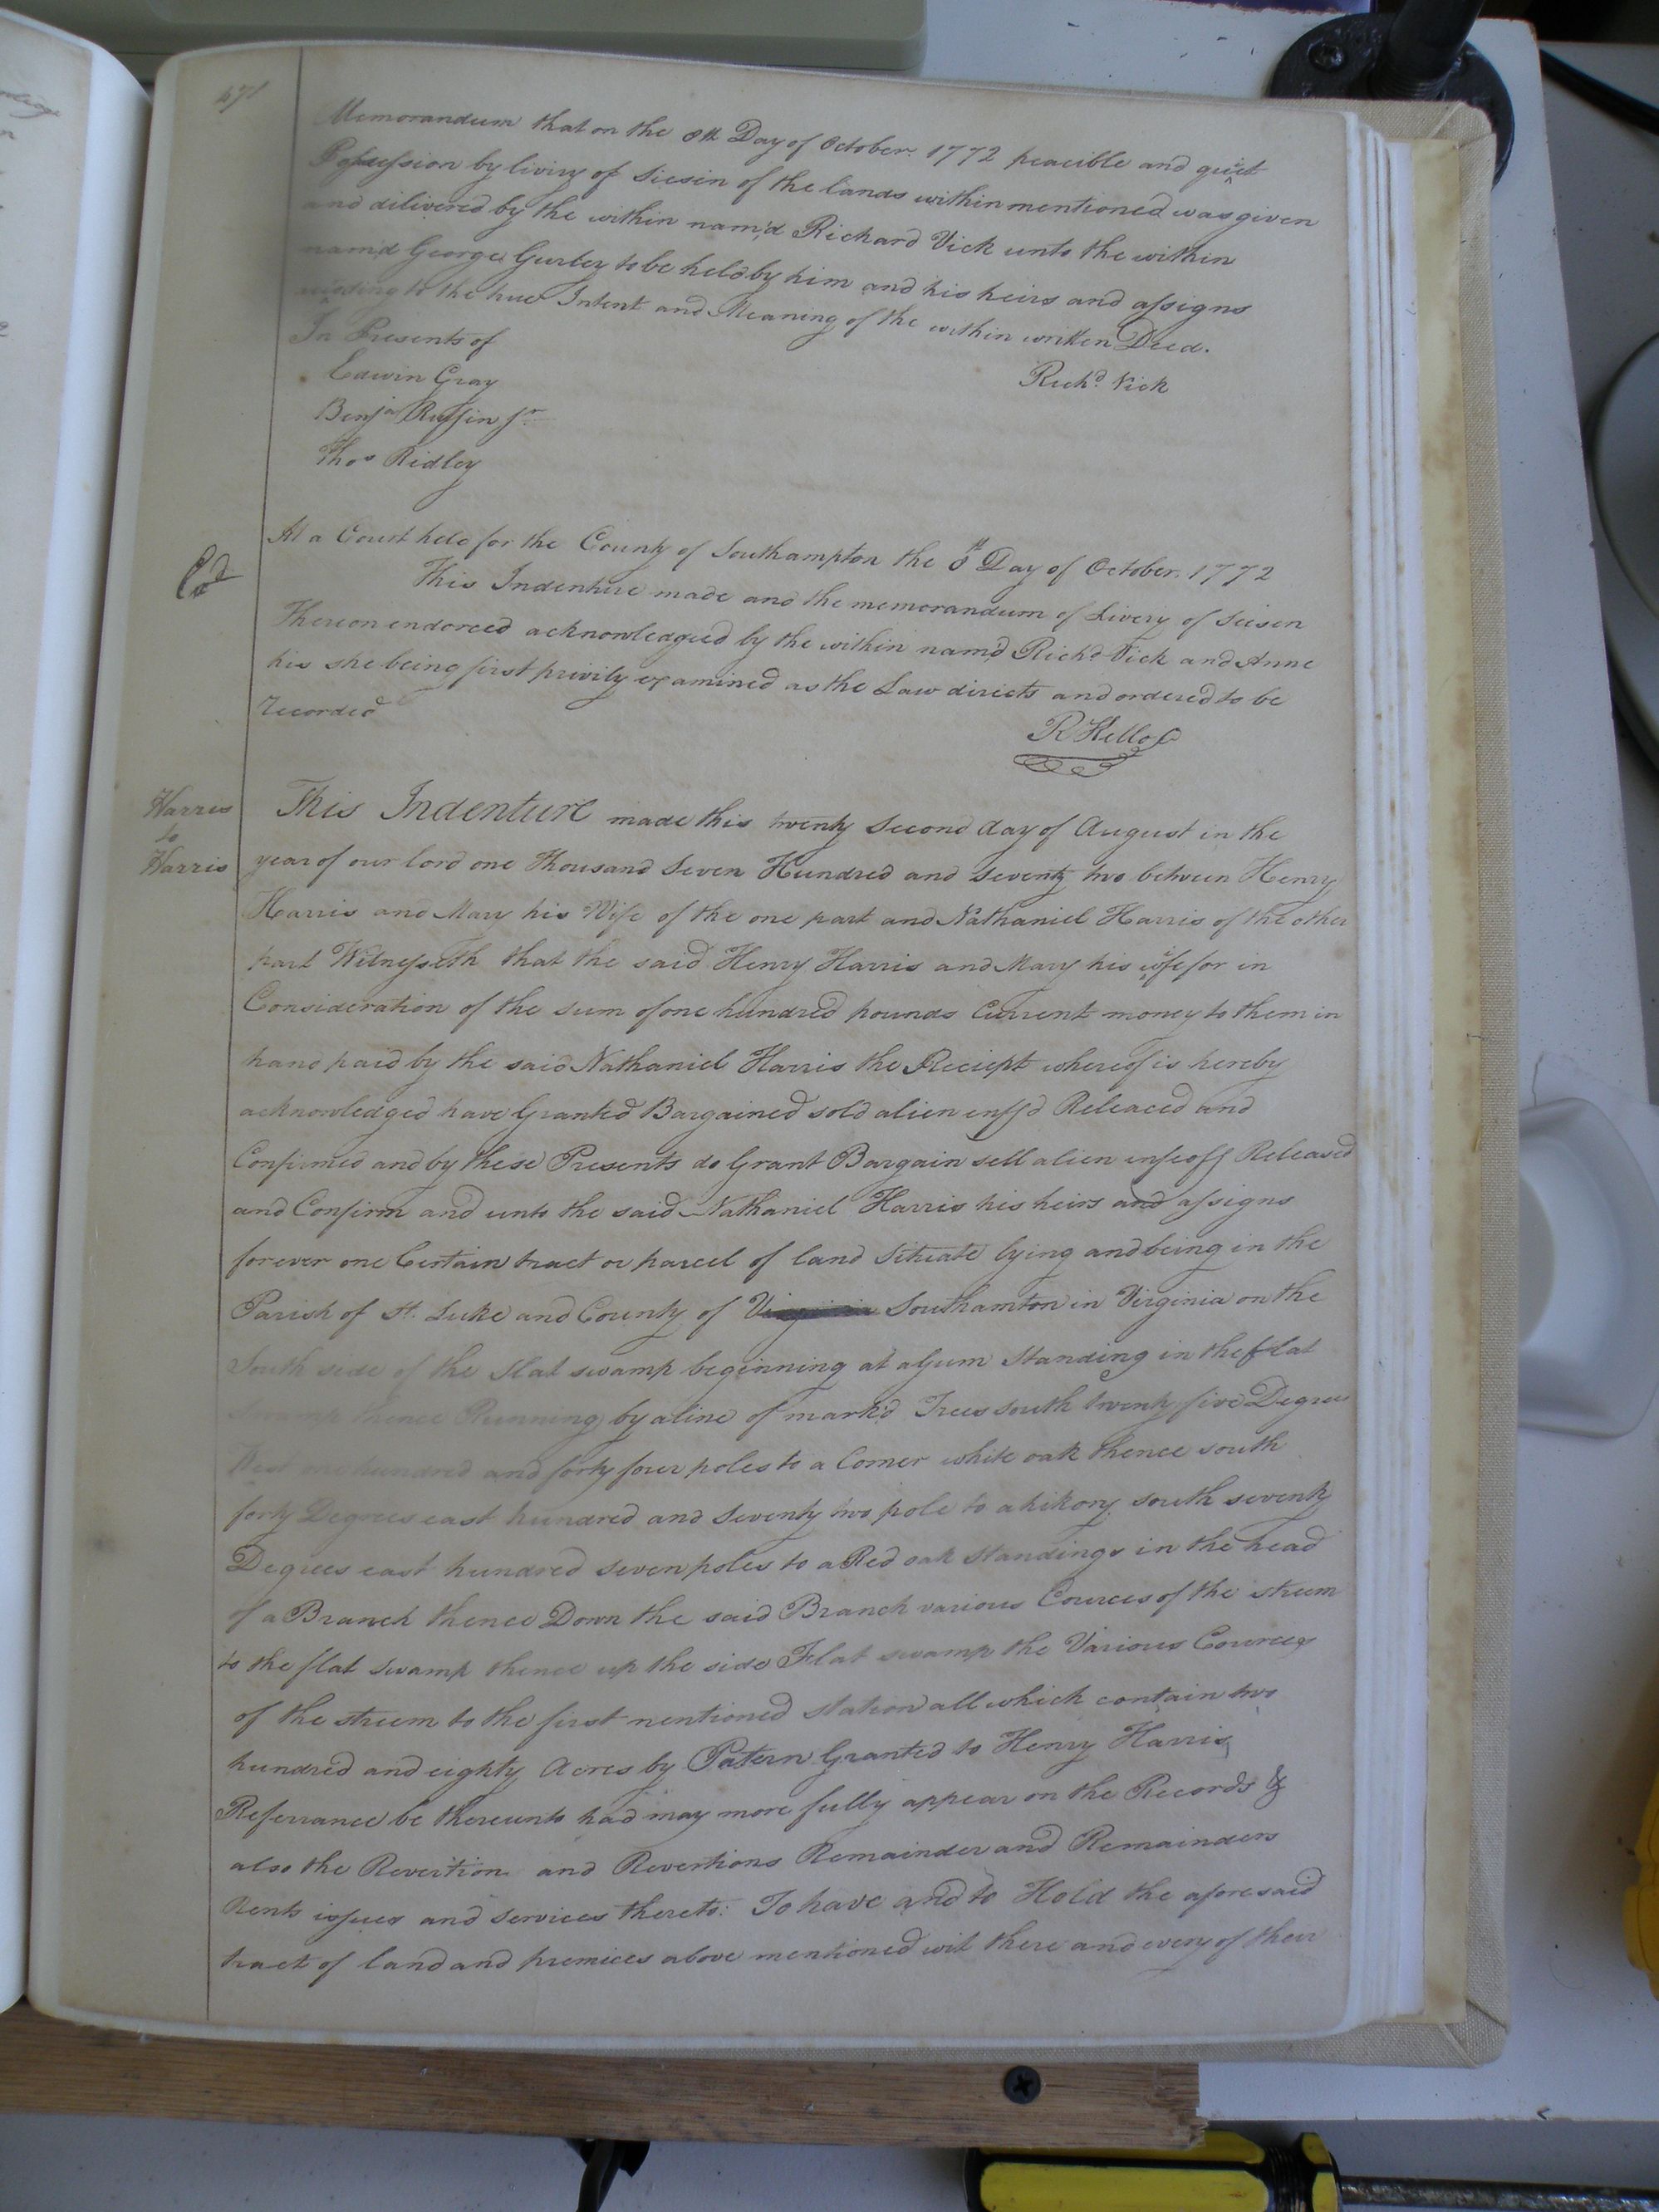 471
Memorandum that on the 8th Day of October 1772 peacible and quiet
Possession by liviry of Siesin of the lands within mentioned was given
and dilivered by the within nam'd Richard Vick unto the within
nam'd George Gurley to be held by him and his heirs and assigns
to the true Intent and Meaning of the within written Deed.
In Presents of
Richd. Vick
Edwin Gray
Benja Ruffin Jr
Thos Ridley
At a Court held for the County of Southampton the 8th Day of October 1772
This Indenture made and the memorandum of Livery of Seisen
Thereon endorced acknowledgeed by the within nam'd Richd. Vick and Anne
his she being first privily examined as the Law directs and ordered to be
recorded
R Kello C
Harris
to
Harris
This Indenture made this twenty Second day of August in the
year of our lord one Thousand Seven Hundred and Seventy two between Henry
Harris and Mary his Wife of the one part and Nathaniel Harris of the other
part Witnesseth that the said Henry Harris and Mary his wife for in
Consideration of the sum of one hundred pounds Current money to them in
hand paid by the said Nathaniel Harris the Reciept whereof is hereby
acknowledged have Granted Bargained sold alien enff'd Releaced and
Confirmed and by these Presents do Grant Bargain sell alien enfeoff Released
and Confirm and unto the said Nathaniel Harris his heirs and assigns
forever one Certain tract or parcel of land Situate lying and being in the
Parish of St. Luke and County of Virginia Southamton in Virginia on the
South side of the flat swamp beginning at a Gum Standing in the flat
swamp thence Running by a line of mark'd Trees south twenty five Degrees
West one hundred and forty four poles to a Corner white oak thence south
forty Degrees east hundred and Seventy two pole to a hikory south seventy
Degrees east hundred seven poles to a Red oak Standings in the head
of a Branch thence Down the said Branch various Cources of the streem
to the flat Swamp thence up the side Flat swamp the Various Cources
of the streem to the first mentioned station all which contain two
hundred and eighty Acres by Patern Granted to Henry Harris
Referrance be thereunto had may more fully appear on the Records &
also the Revertion and Revertions Remainder and Remainders
Rents issues and Services thereto: To have and to Hold the aforesaid
tract of land and premices above mentioned wit there and every of their